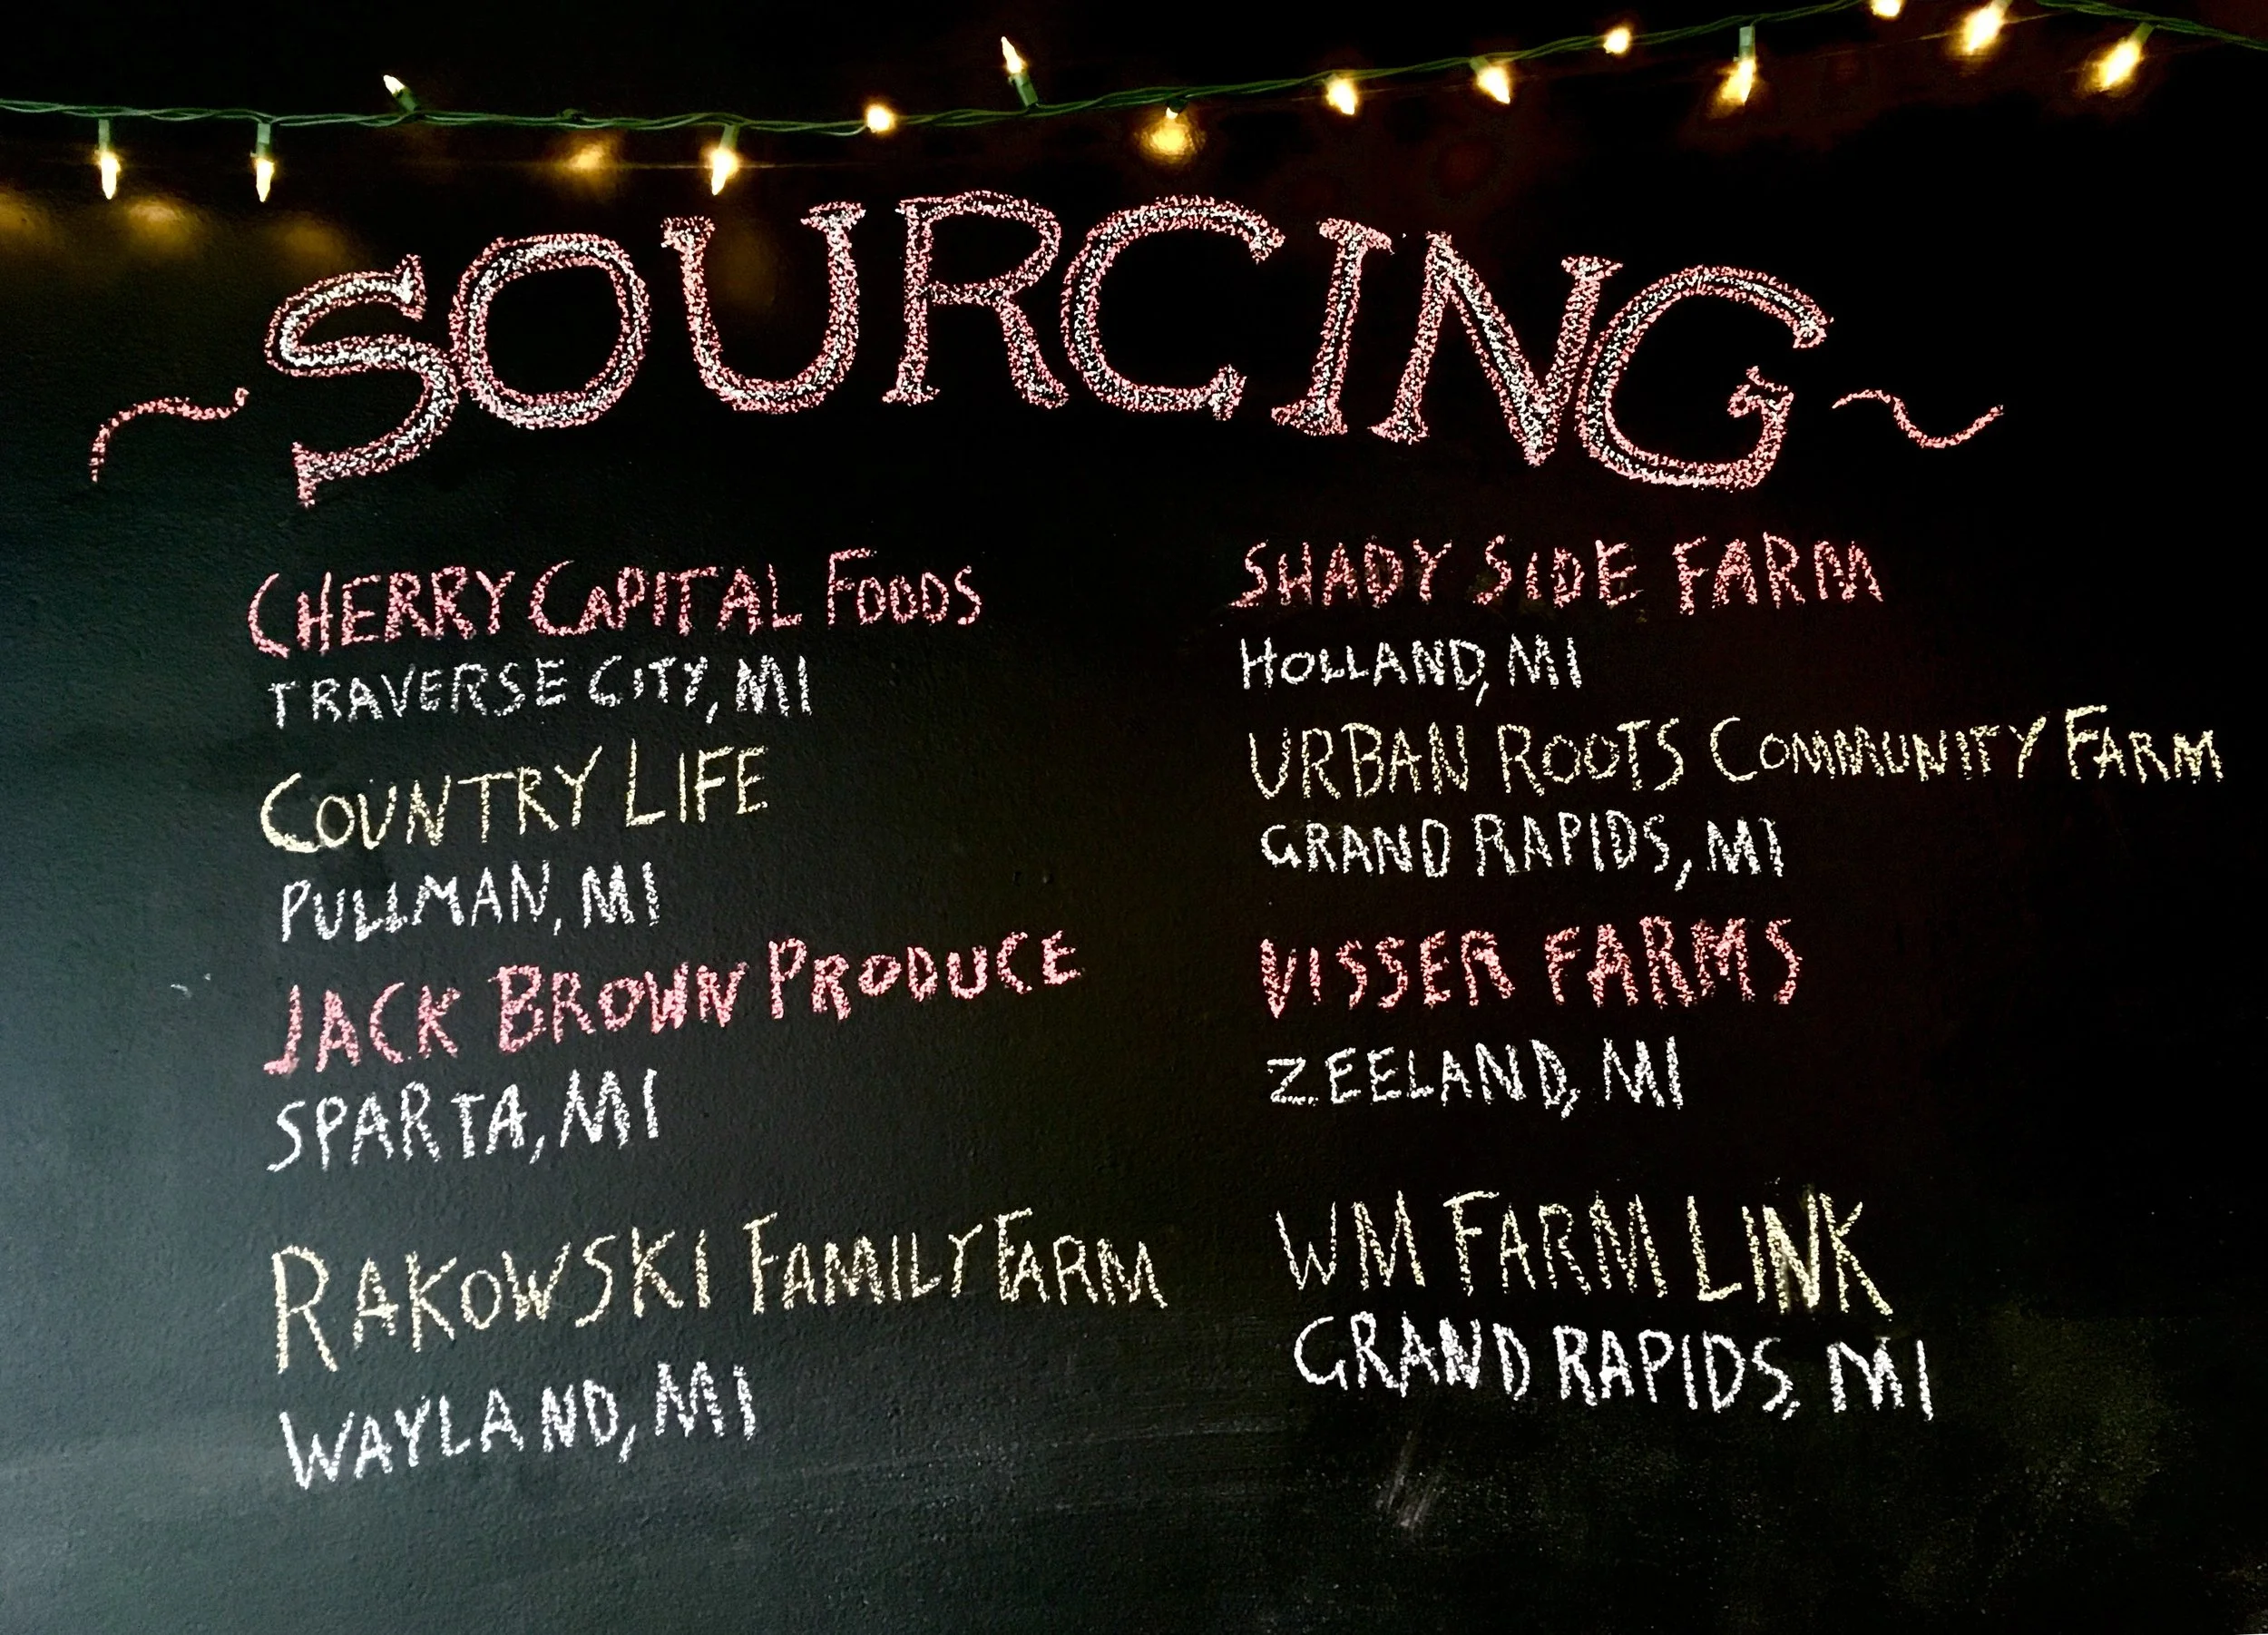 ~SOURCING~
CHERRY CAPITAL FOODS
TRAVERSE CITY, MI
COUNTRY LIFE
PULLMAN, MI
JACK BROWN PRODUCE
SPARTA, MI
RAKOWSKI FAMILY FARM
WAYLAND, MI
SHADY SIDE FARM
HOLLAND, MI
URBAN ROOTS COMMUNITY FARM
GRAND RAPIDS, MI
VISSER FARMS
ZEELAND, MI
WM FARM LINK
GRAND RAPIDS, MI